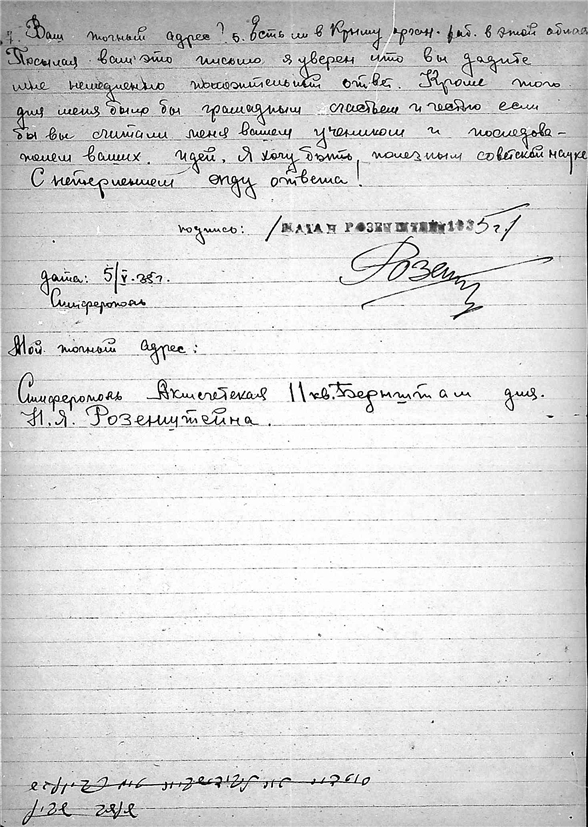 7. Ваш точный адрес? 6. Есть ли в Крыму орган. раб. в этой области
Посылая вам это письмо, я уверен что вы дадите
мне немедленно положительный ответ. Кроме того
для меня было бы грамадным счастьем и честью если
бы вы считали меня вашем учеником и последова-
телем ваших идей. Я хочу быть полезным советской науке
С нетерпением жду ответа!
подпись: /НАТАН РОЗЕНШТЕЙН 1935 г/
Розенш
дата: 5/V-35г.
Симферополь
Мой точный адрес:
Симферополь Акмечетская 11 кв. Бернштам для.
Н. Я. Розенштейна.